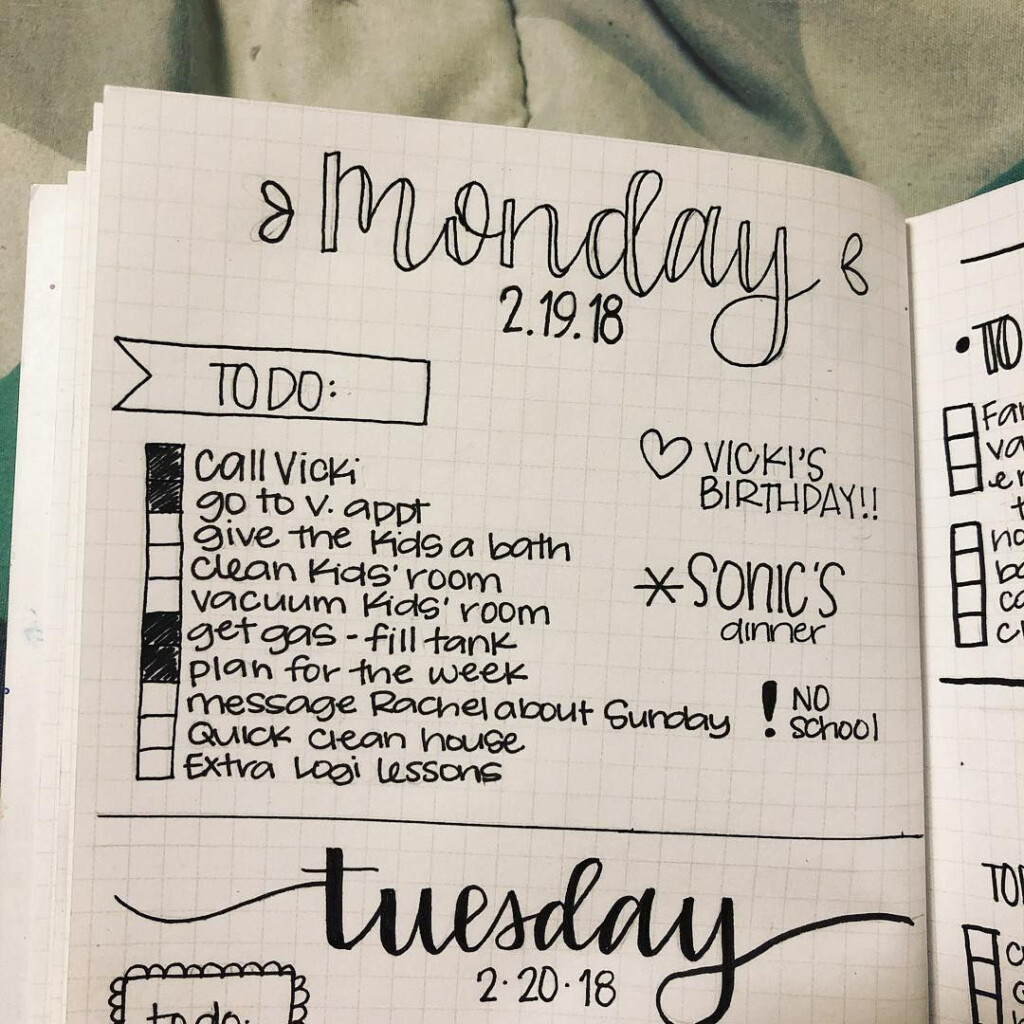 monday
2.19.18
TO DO:
call Vicki
go to v. appt
give the kids a bath
clean kids' room
vacuum kids' room
get gas - fill tank
plan for the week
message Rachel about Sunday
Quick clean house
Extra Logi lessons
♡ VICKI'S
BIRTHDAY!!
*SONIC'S
dinner
! NO
school
tuesday
2.20.18
to do: